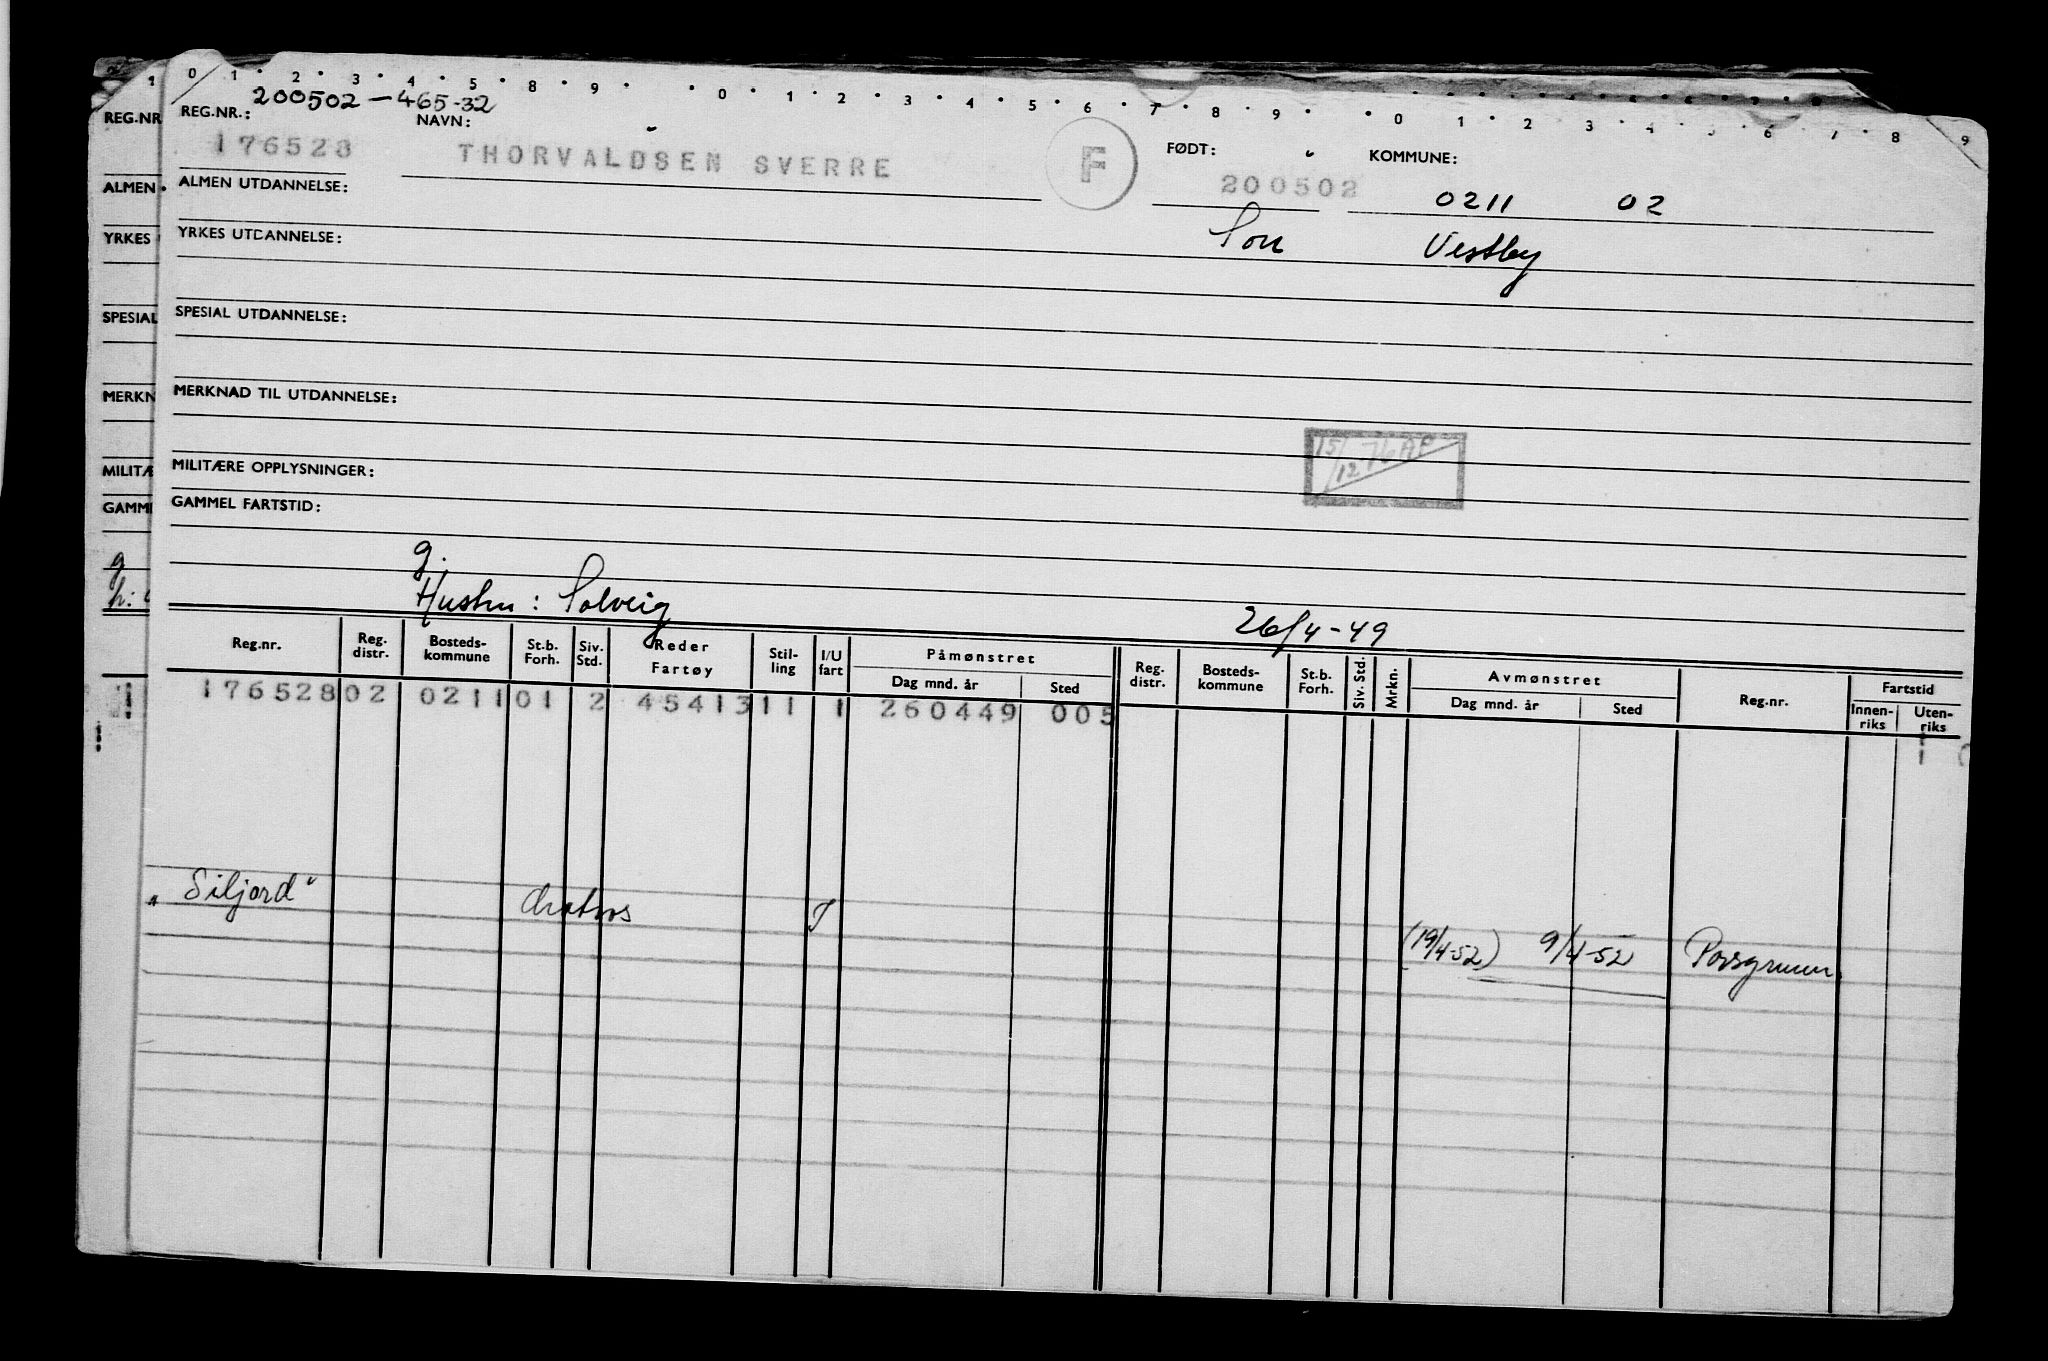 0 1 2 3 4 5 8 9 0 1 2 3 4 5 6 7 8 9 0 1 2 3 4 5 6 7 8 9
200502-465-32
REG.NR.: NAVN: FØDT: KOMMUNE:
176528 THORVALDSEN SVERRE F 200502 0211 02
ALMEN UTDANNELSE:
Son Vestby
YRKES UTDANNELSE:
SPESIAL UTDANNELSE:
MERKNAD TIL UTDANNELSE:
15/12 76 AP
MILITÆRE OPPLYSNINGER:
GAMMEL FARTSTID:
g.
Hustru: Solveig 26/4-49
Reg.nr. Reg. distr. Bosteds-kommune St.b. Forh. Siv. Std. Reder Fartøy Stil-ling I/U fart Påmønstret Dag mnd. år Sted Reg. distr. Bosteds-kommune St.b. Forh. Siv. Std. Mrkn. Avmønstret Dag mnd. år Sted Reg.nr. Fartstid Innen-riks Uten-riks
176528 02 0211 01 2 45413 11 1 260449 005
"Siljord"
(19/4-52) 9/4-52 Porsgrunn
REG.NR
ALMEN
YRKES
SPESIAL
MERKN
MILITÆ
GAMME
g
h: